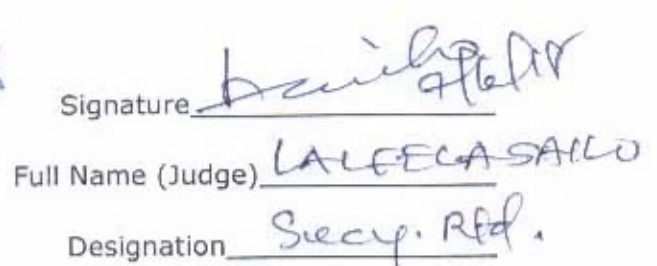 Signature
Full Name (Judge) LALEECA SAILO
Designation Secy. Rtd.